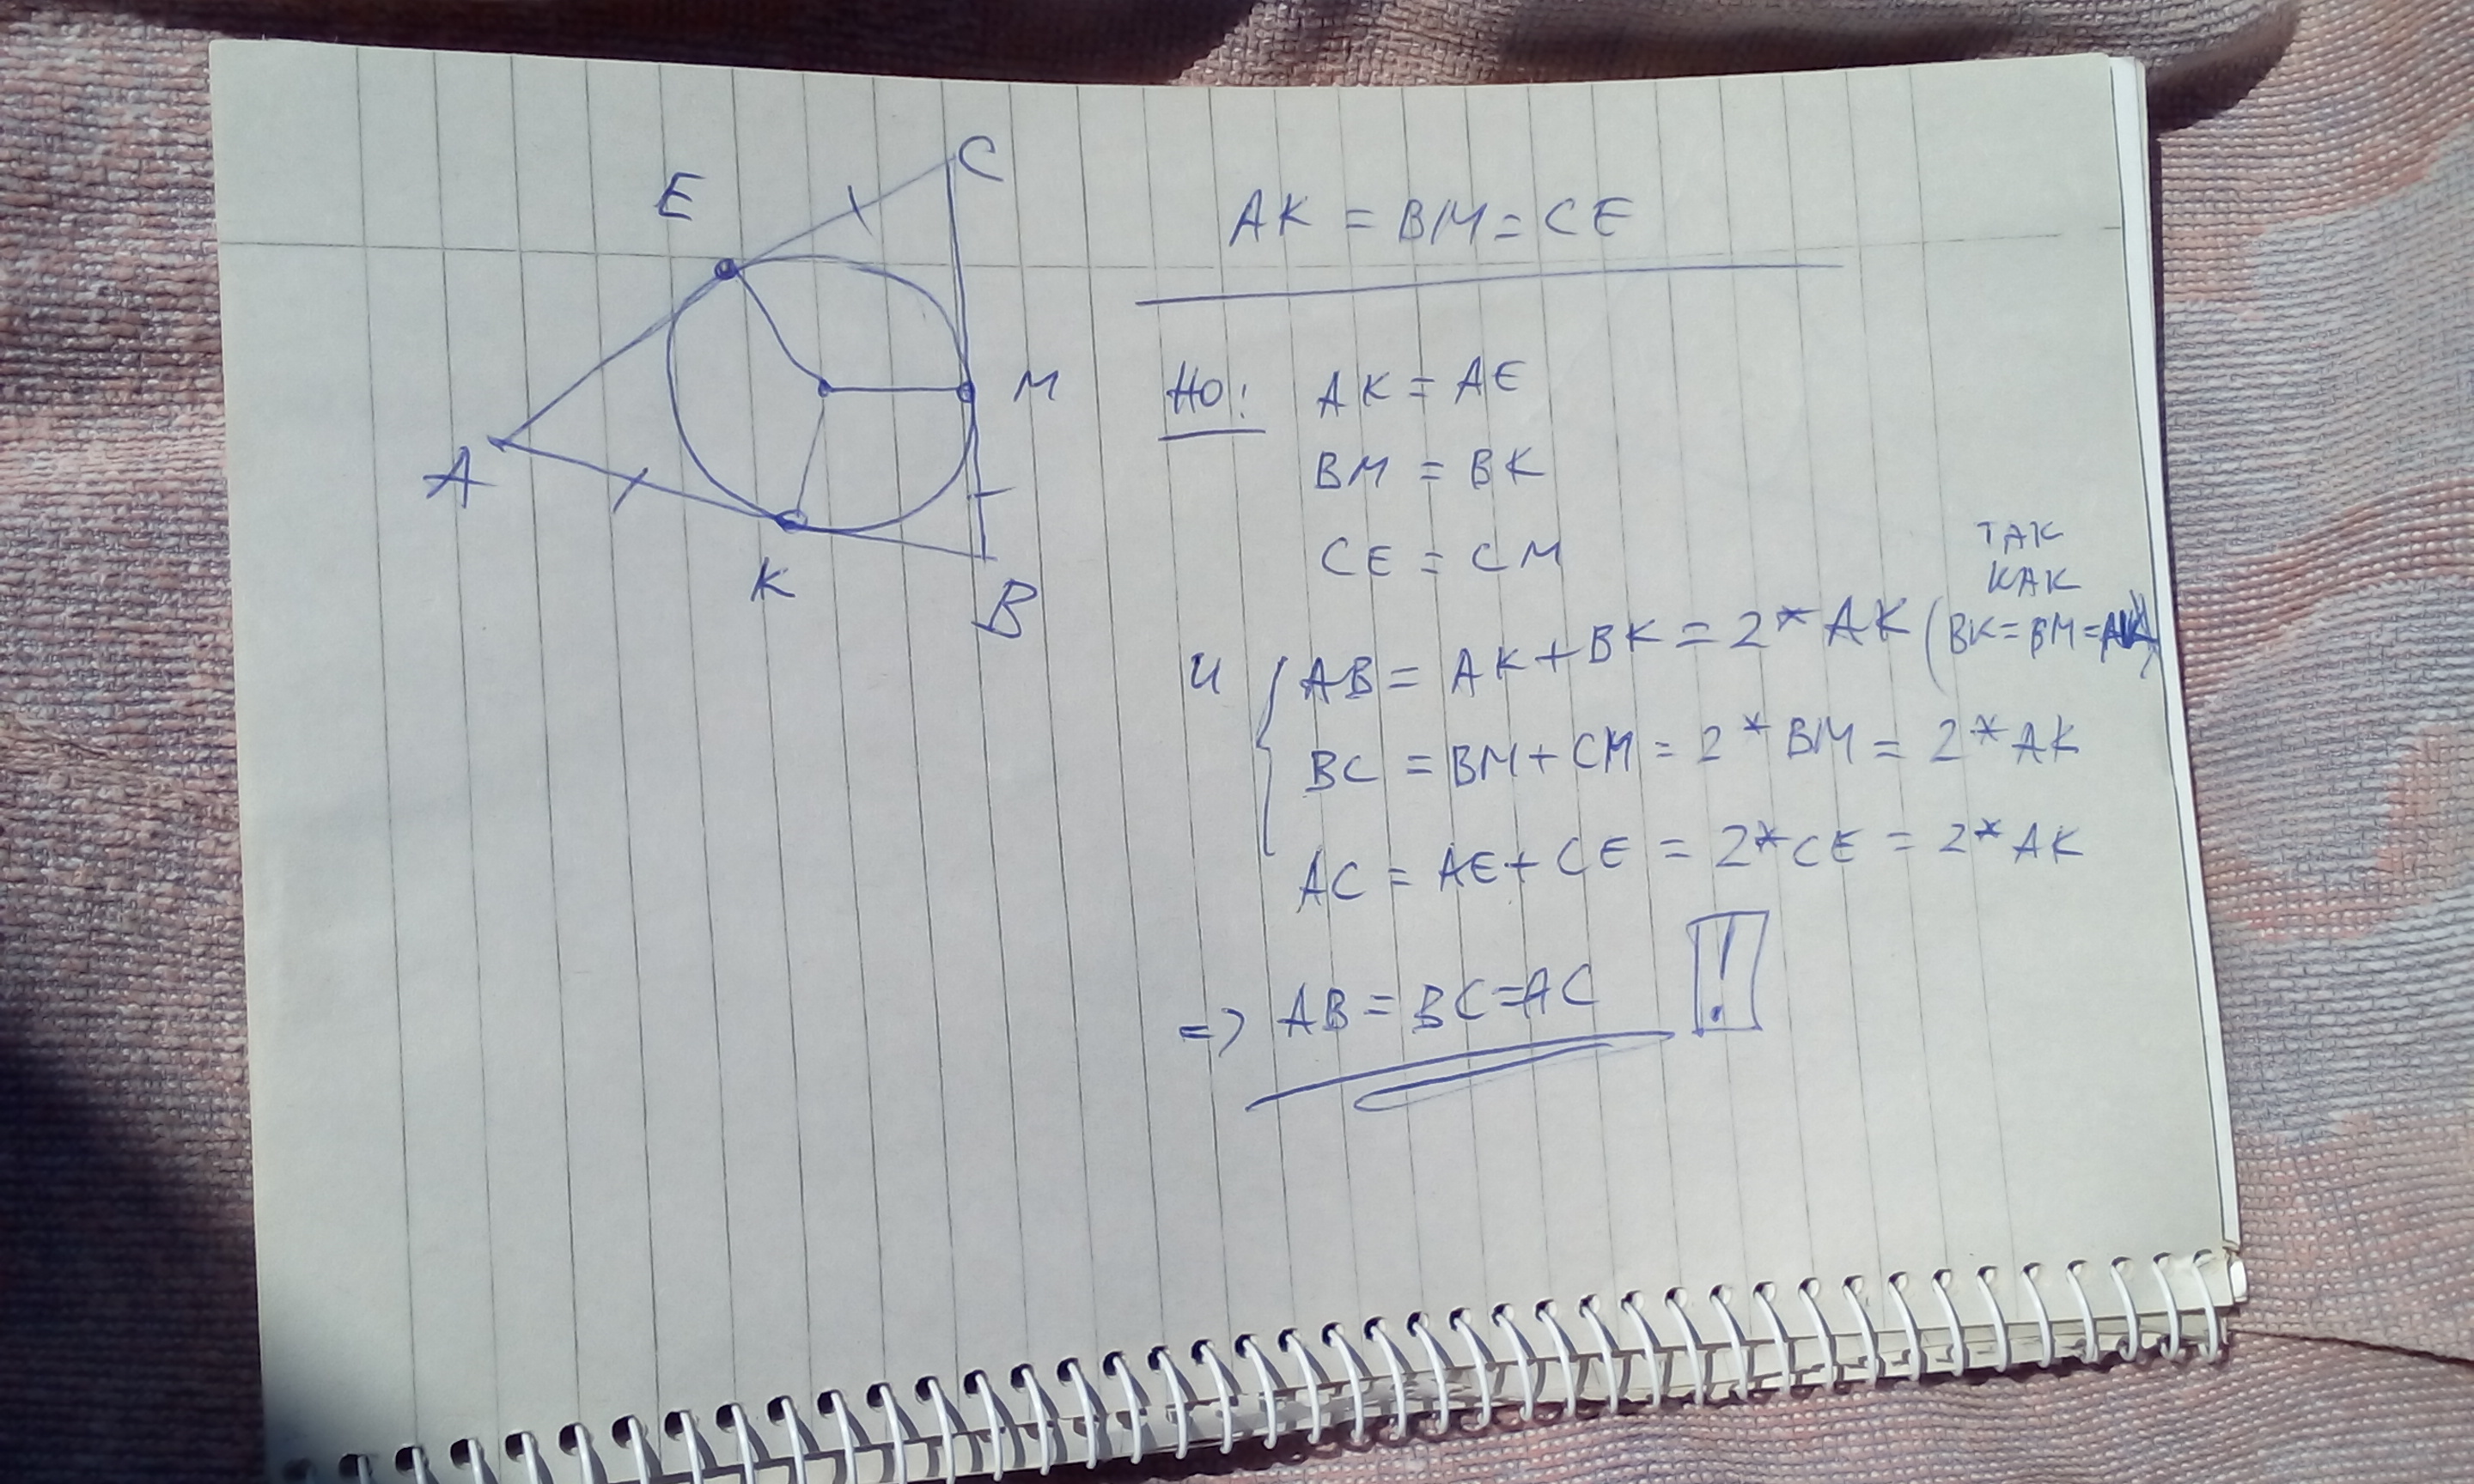 E
C
M
A
K
B
AK = BM = CE
НО: AK = AE
BM = BK
CE = CM
ТАК
КАК
И { AB = AK + BK = 2*AK (BK = BM = AK)
BC = BM + CM = 2*BM = 2*AK
AC = AE + CE = 2*CE = 2*AK
=> AB = BC = AC !